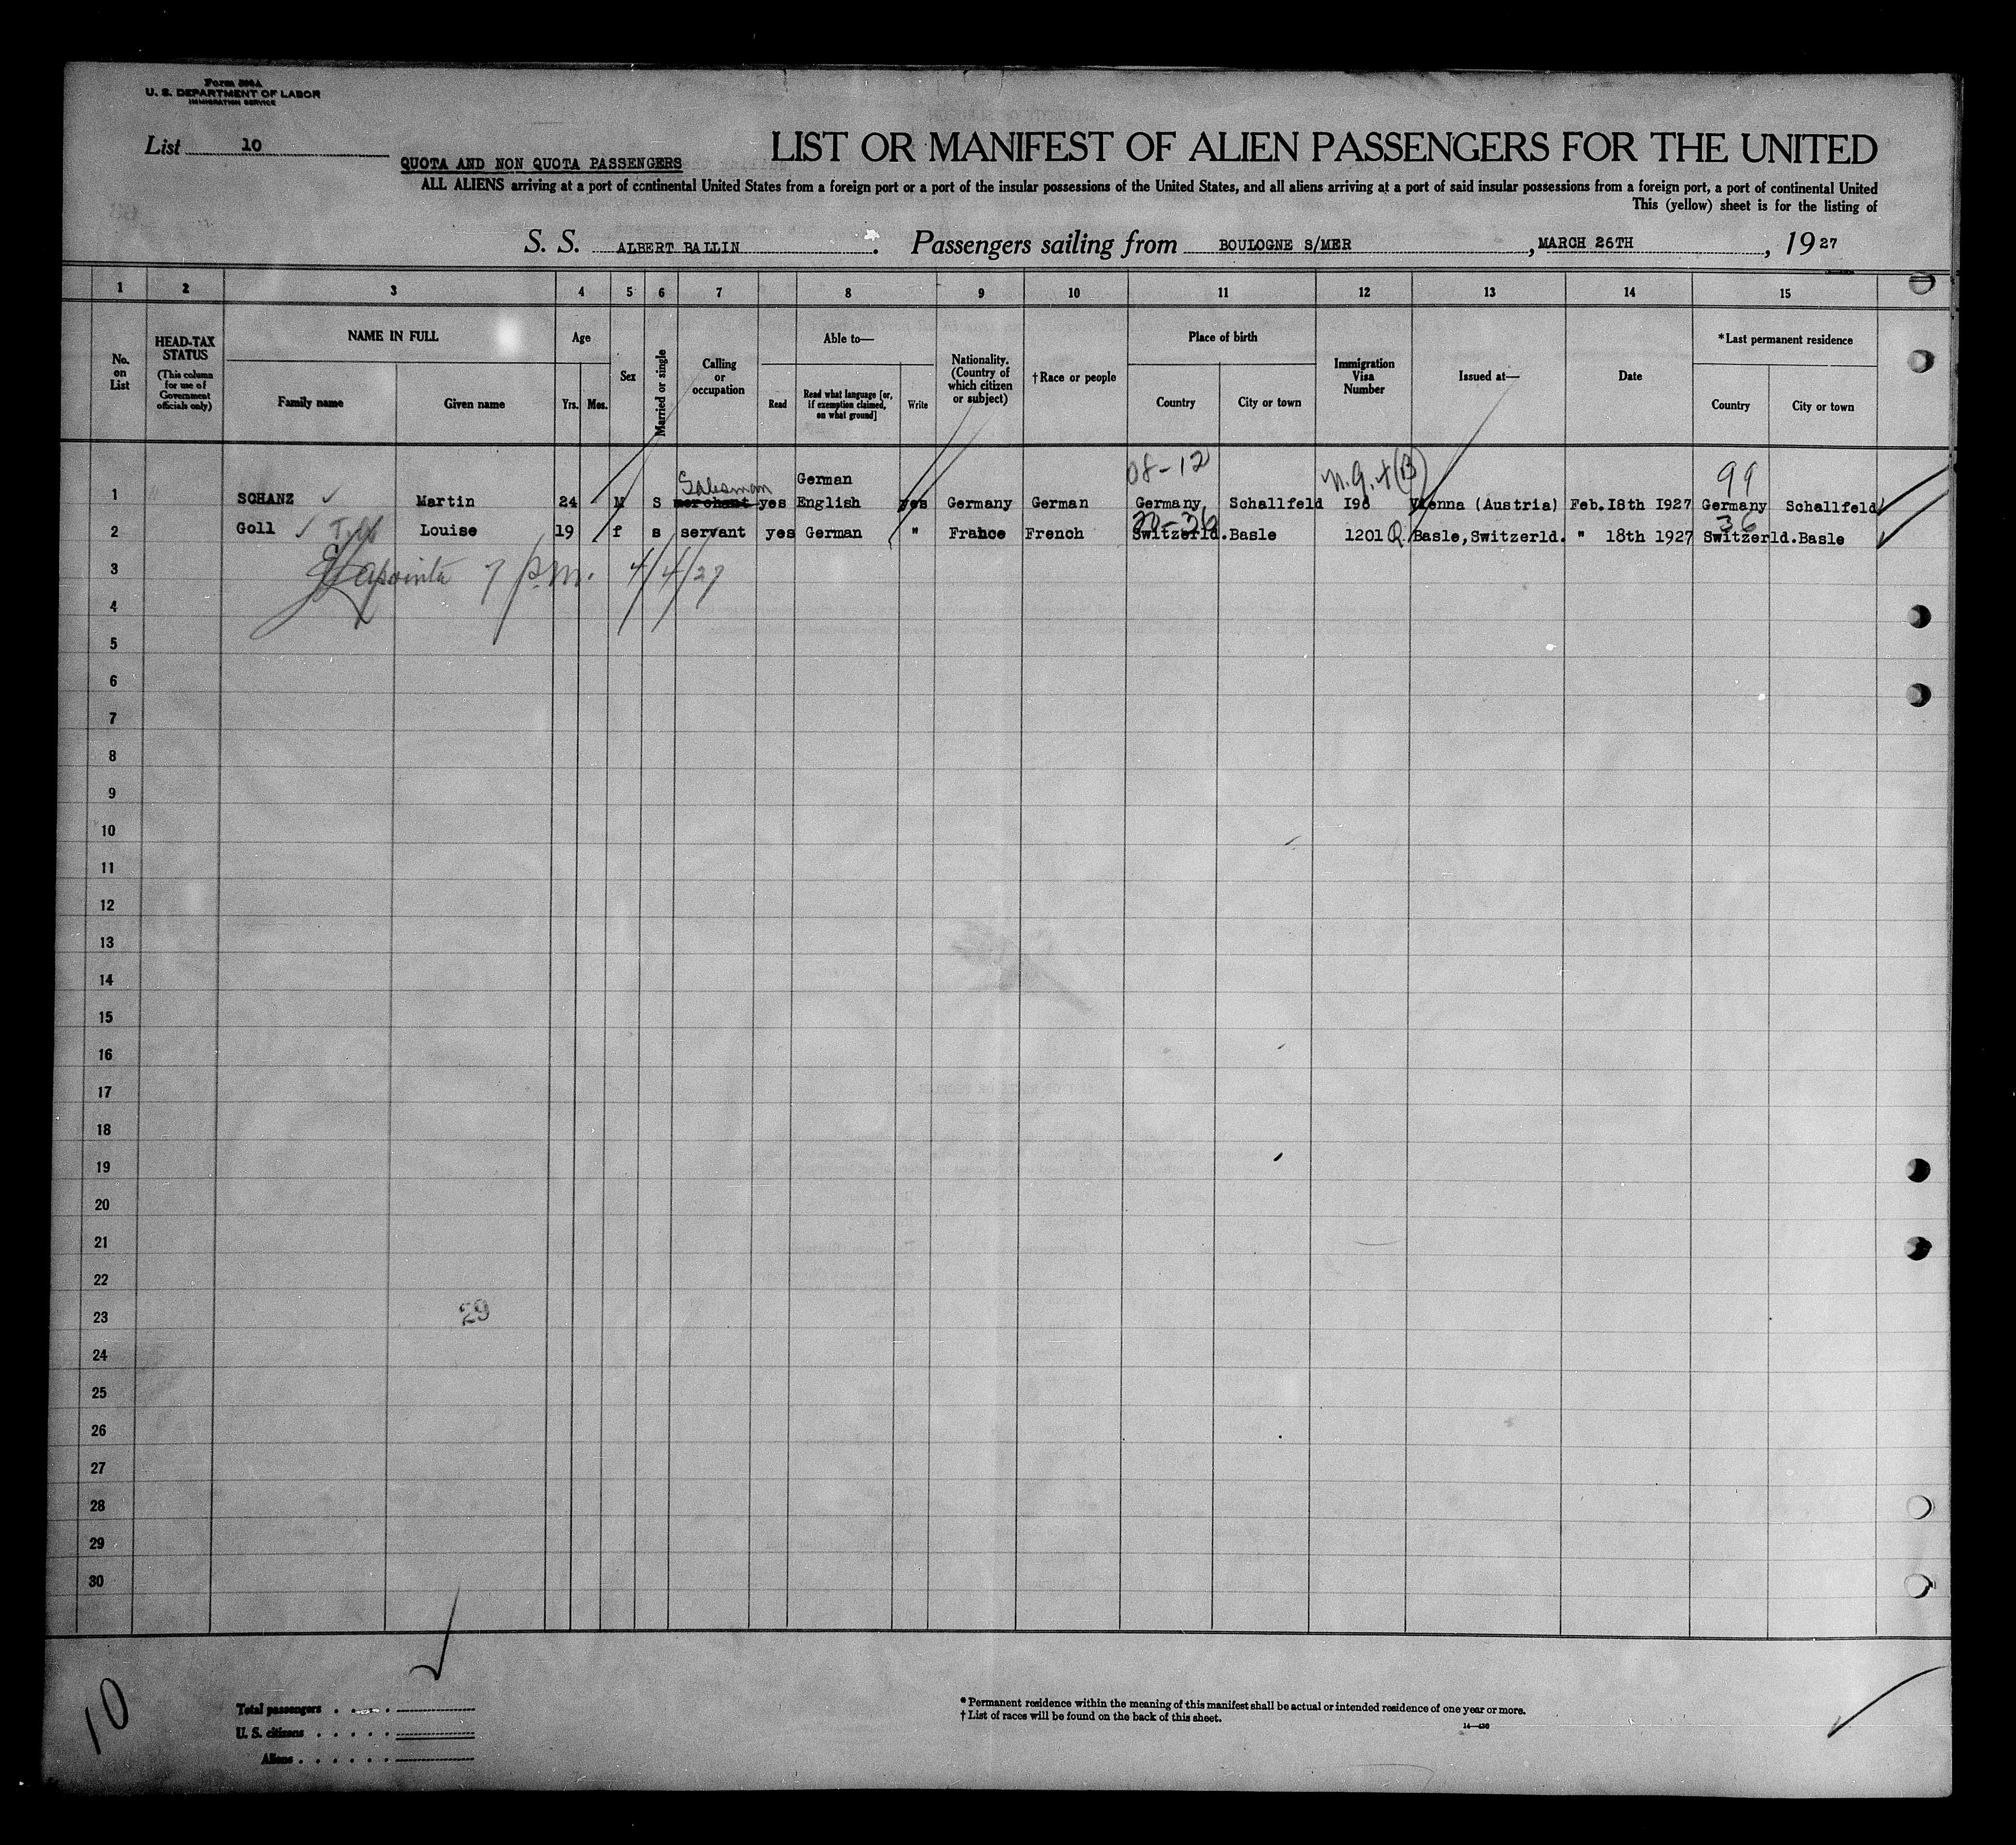 Form 500A
U. S. DEPARTMENT OF LABOR
IMMIGRATION SERVICE
List 10
LIST OR MANIFEST OF ALIEN PASSENGERS FOR THE UNITED
QUOTA AND NON QUOTA PASSENGERS
ALL ALIENS arriving at a port of continental United States from a foreign port or a port of the insular possessions of the United States, and all aliens arriving at a port of said insular possessions from a foreign port, a port of continental United
This (yellow) sheet is for the listing of
S. S. ALBERT BALLIN. Passengers sailing from BOULOGNE S/MER, MARCH 26TH, 1927
1 2 3 4 5 6 7 8 9 10 11 12 13 14 15
No. on List
HEAD-TAX STATUS (This column for use of Government officials only)
NAME IN FULL
Family name
Given name
Age
Yrs. Mos.
Sex
Married or single
Calling or occupation
Able to—
Read
Read what language [or, if exemption claimed, on what ground]
Write
Nationality. (Country of which citizen or subject)
†Race or people
Place of birth
Country
City or town
Immigration Visa Number
Issued at—
Date
*Last permanent residence
Country
City or town
08-12 99
Salesman German
1 SCHANZ Martin 24 M S merchant yes English yes Germany German Germany Schallfeld 198 Vienna (Austria) Feb.18th 1927 Germany Schallfeld
36
2 Goll Louise 19 f s servant yes German " France French Switzerld. Basle 1201 Q Basle,Switzerld. " 18th 1927 Switzerld. Basle
3 Lapointe 7 p.m. 4/4/27
4
5
6
7
8
9
10
11
12
13
14
15
16
17
18
19
20
21
22
23 29
24
25
26
27
28
29
30
10
Total passengers
U. S. citizens
Aliens
* Permanent residence within the meaning of this manifest shall be actual or intended residence of one year or more.
† List of races will be found on the back of this sheet.
14—430